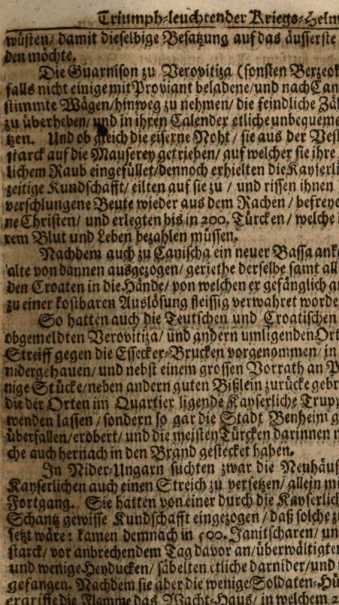 Triumph-leuchtender Kriegs-Helm
wüsten/ damit dieselbige Besatzung auf das äusserste
den möchte.
Die Guarnison zu Verovitiza (sonsten Berzeok
falls nicht einige mit Proviant beladene/ und nach Can
stimmte Wägen/ hinweg zu nehmen/ die feindliche Zäl
zu überheben/ und in ihren Calender etliche unbequeme
tzen. Und ob gleich die eiserne Noht/ sie aus der Vest
starck auf die Mauserey getrieben/ auf welcher sie ihre
lichem Raub eingefüllet/ dennoch erhielten die Kayserli
zeitige Kundschafft/ eilten auf sie zu/ und rissen ihnen
verschlungene Beute wieder aus dem Rachen/ befreye
ne Christen/ und erlegten bis in 200. Türcken/ welche
rem Blut und Leben bezahlen müssen.
Nachdem auch zu Canischa ein neuer Bassa ank
alte von dannen ausgezogen/ geriethe derselbe samt all
den Croaten in die Hände/ von welchen er gefänglich a
zu einer kostbaren Auslösung fleissig verwahret worde
So hatten auch die Teutschen und Croatischen
obgemeldten Verovitiza/ und andern umligenden Ort
Streiff gegen die Essecker-Brucken vorgenommen/ in
nidergehauen/ und nebst einem grossen Vorrath an P
nige Stücke/ neben andern guten Bißlein zurücke gebr
die der Orten im Quartier ligende Kayserliche Trupp
wenden lassen/ sondern so gar die Stadt Benheim g
überfallen/ erobert/ und die meisten Türcken darinnen
che auch hernach in den Brand gestecket haben.
In Nider-Ungarn suchten zwar die Neuhäus
Kayserlichen auch einen Streich zu versetzen/ allein mi
Fortgang. Sie hatten von einer durch die Kayserlich
Schantz gewisse Kundschafft eingezogen/ daß solche
setzt wäre: kamen demnach in 500. Janitscharen/ un
starck/ vor anbrechendem Tag davor an/ überwältigte
und wenige Heyducken/ säbelten etliche darnider/ und
gefangen. Nachdem sie aber die wenige Soldaten-Hü
ergriffe die Flamme das Wacht-Haus/ in welchem